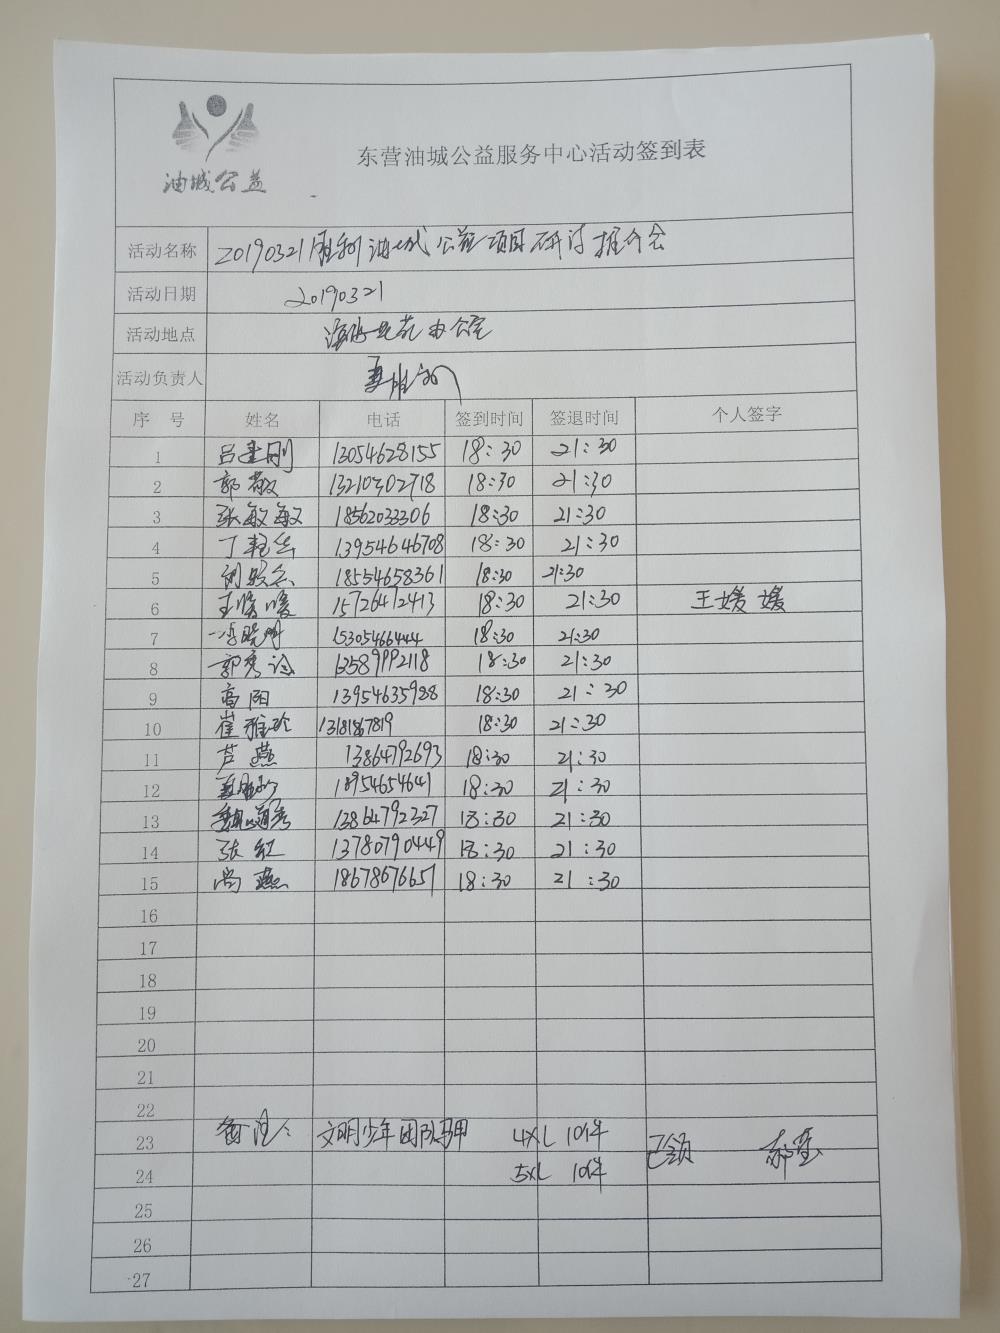 油城公益
东营油城公益服务中心活动签到表
活动名称 20190321胜利油城公益项目研讨推介会
活动日期 20190321
活动地点 办公室
活动负责人
序 号 姓名 电话 签到时间 签退时间 个人签字
1 吕建刚 13054628155 18:30 21:30
2 郭敬 13210302718 18:30 21:30
3 张敏敏 18562033306 18:30 21:30
4 丁艳华 13954646708 18:30 21:30
5 18554658361 18:30 21:30
6 王媛媛 15726412413 18:30 21:30 王媛媛
7 李晓明 15305466444 18:30 21:30
8 郭秀 13589992118 18:30 21:30
9 高阳 13954635928 18:30 21:30
10 崔雅玲 13181867819 18:30 21:30
11 芦燕 13864792693 18:30 21:30
12 18954654641 18:30 21:30
13 13864792327 18:30 21:30
14 张红 13780790449 18:30 21:30
15 尚燕 18678676651 18:30 21:30
16
17
18
19
20
21
22
23 备注: 文明少年团队马甲 4XL 10件 已领 郝莹
24 5XL 10件
25
26
27